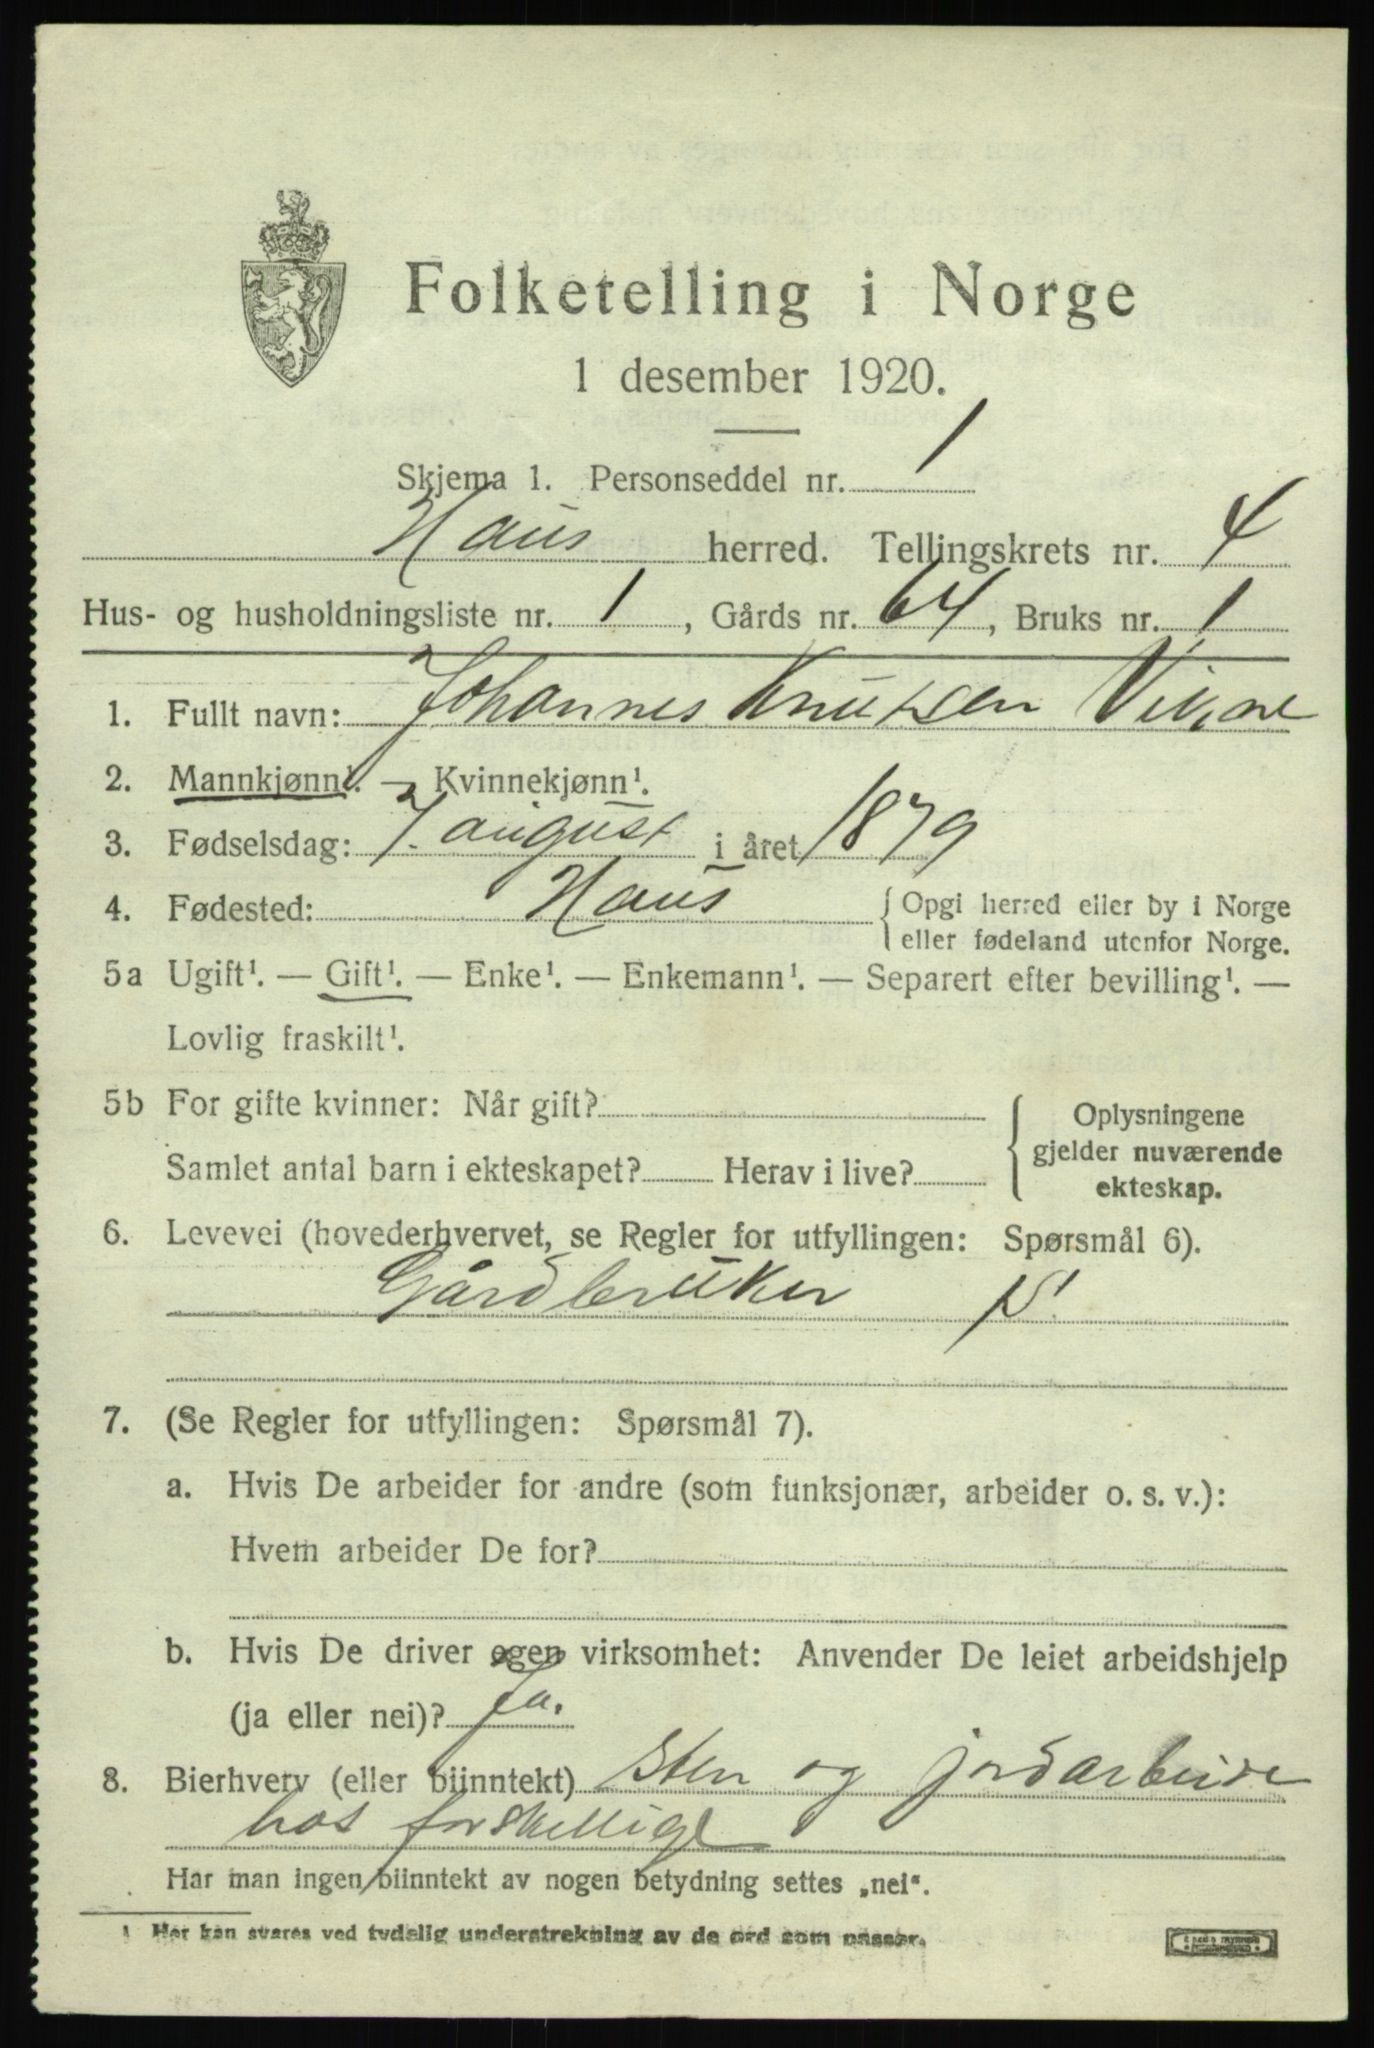 Folketelling i Norge
1 desember 1920.
Skjema 1. Personseddel nr. 1
Haus herred. Tellingskrets nr. 4
Hus- og husholdningsliste nr. 1, Gårds nr. 64, Bruks nr. 1
1. Fullt navn: Johannes Knutsen
2. Mannkjønn¹. — Kvinnekjønn¹.
3. Fødselsdag: 7. august i året 1879
4. Fødested: Haus { Opgi herred eller by i Norge
eller fødeland utenfor Norge.
5a Ugift¹. — Gift¹. — Enke¹. — Enkemann¹. — Separert efter bevilling¹. —
Lovlig fraskilt¹.
5b For gifte kvinner: Når gift? { Oplysningene
gjelder nuværende
ekteskap.
Samlet antal barn i ekteskapet? Herav i live?
6. Levevei (hovederhvervet, se Regler for utfyllingen: Spørsmål 6).
Gårdbruker
7. (Se Regler for utfyllingen: Spørsmål 7).
a. Hvis De arbeider for andre (som funksjonær, arbeider o. s. v.):
Hvem arbeider De for?
b. Hvis De driver egen virksomhet: Anvender De leiet arbeidshjelp
(ja eller nei)? Ja.
8. Bierhverv (eller biinntekt) Sten og jordarbeide
hos forskellige
Har man ingen biinntekt av nogen betydning settes „nei“.
¹ Her kan svares ved tydelig understrekning av de ord som passer.